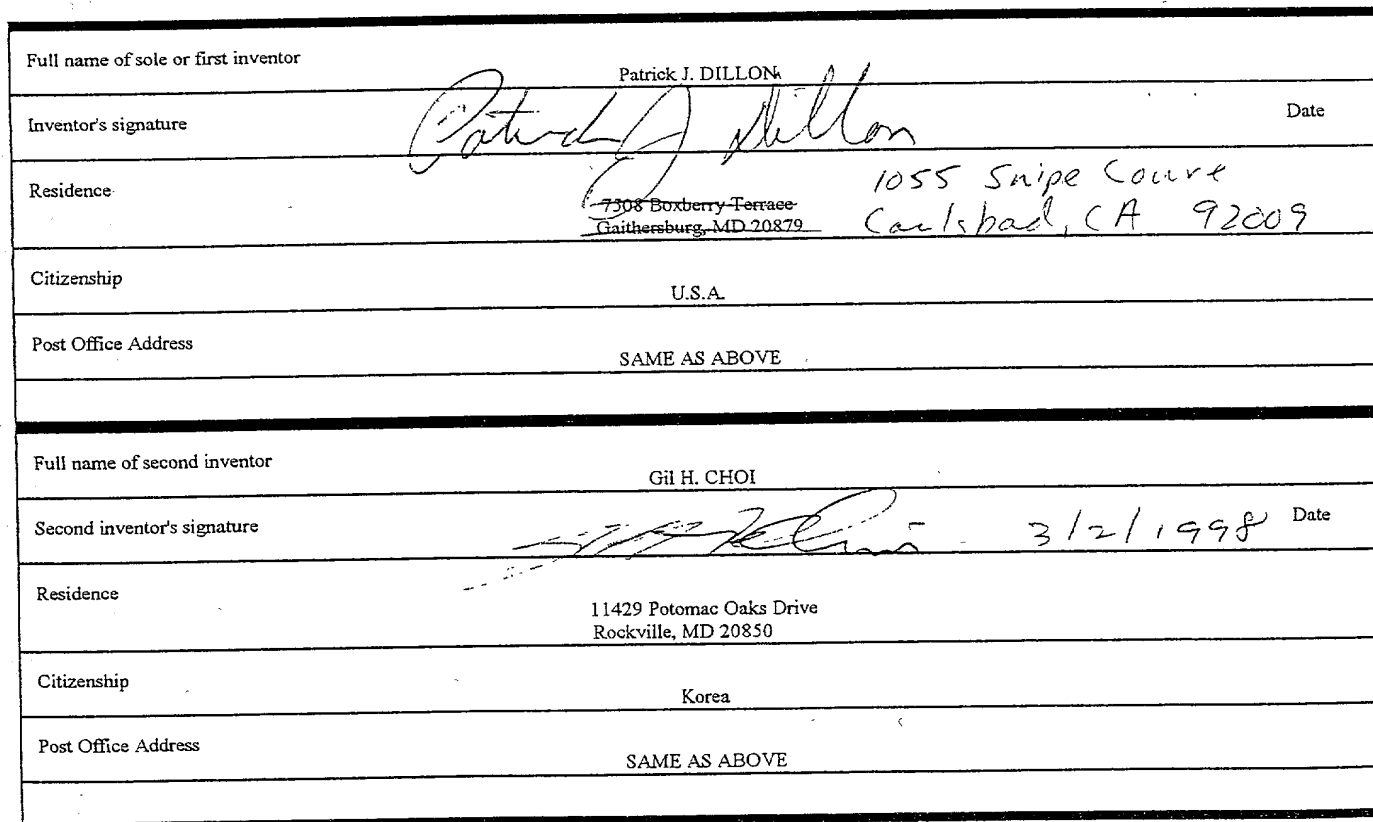 Full name of sole or first inventor
Patrick J. DILLON
Inventor's signature Patrick J Dillon Date
Residence
7308 Boxberry Terrace 1055 Snipe Court
Gaithersburg, MD 20879 Carlsbad, CA 92009
Citizenship
U.S.A.
Post Office Address
SAME AS ABOVE
Full name of second inventor
Gil H. CHOI
Second inventor's signature 3/2/1998 Date
Residence
11429 Potomac Oaks Drive
Rockville, MD 20850
Citizenship
Korea
Post Office Address
SAME AS ABOVE